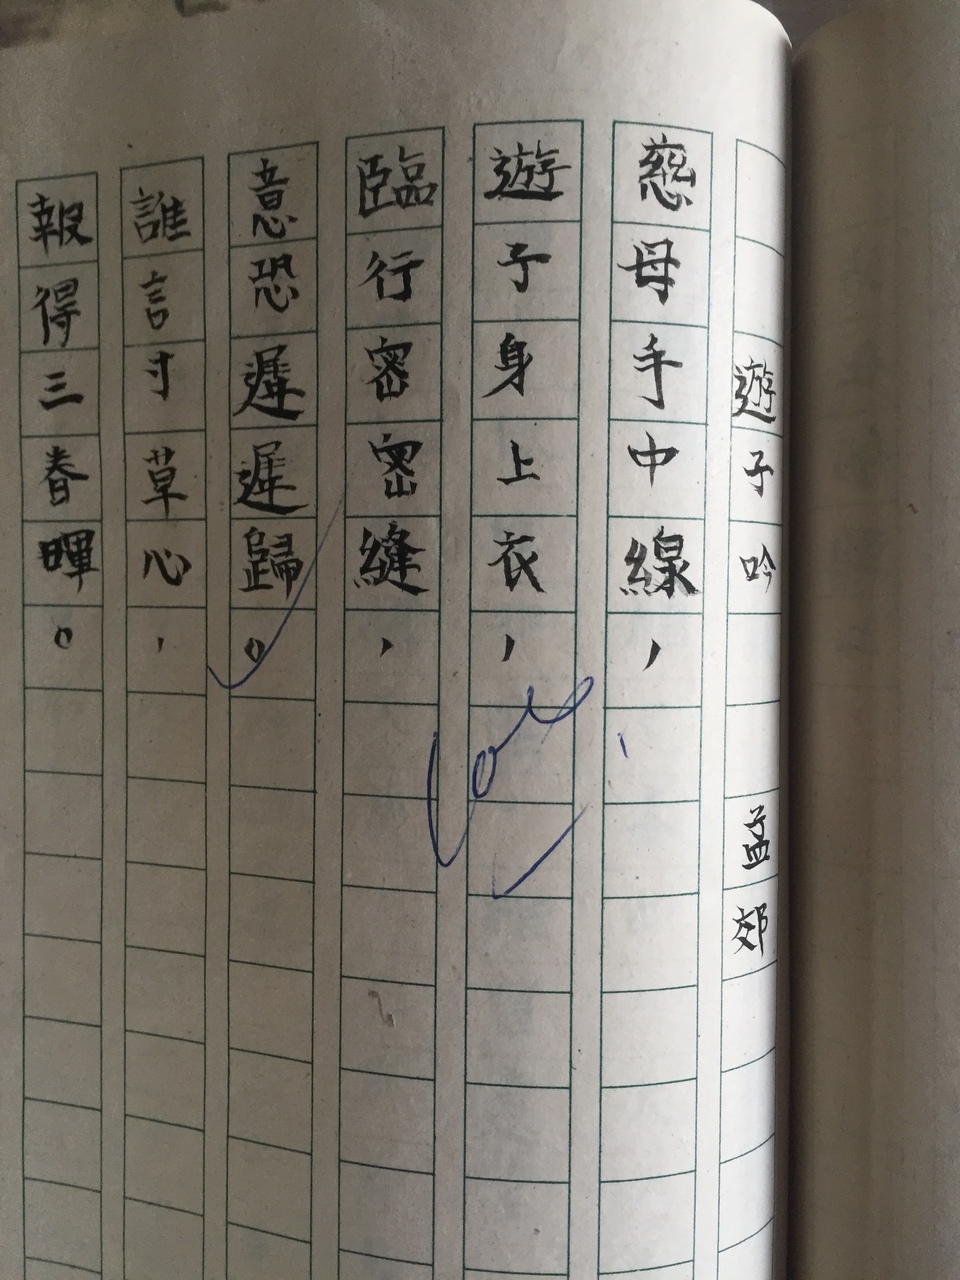 遊子吟 孟郊
慈母手中線，
遊子身上衣，
臨行密密縫，
意恐遲遲歸。
誰言寸草心，
報得三春暉。